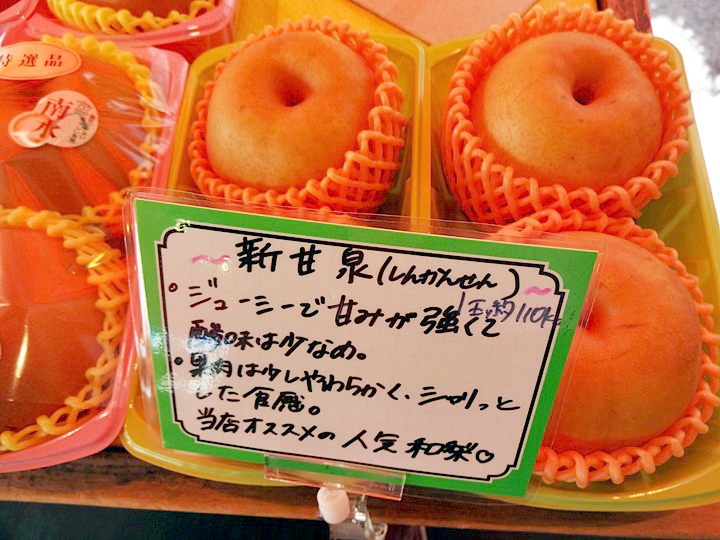 特選品
南水
新甘泉(しんかんせん)
。ジューシーで甘みが強くて
酸味は少なめ。
。果肉は少しやわらかく、シャリっと
した食感。
当店オススメの人気和梨♡